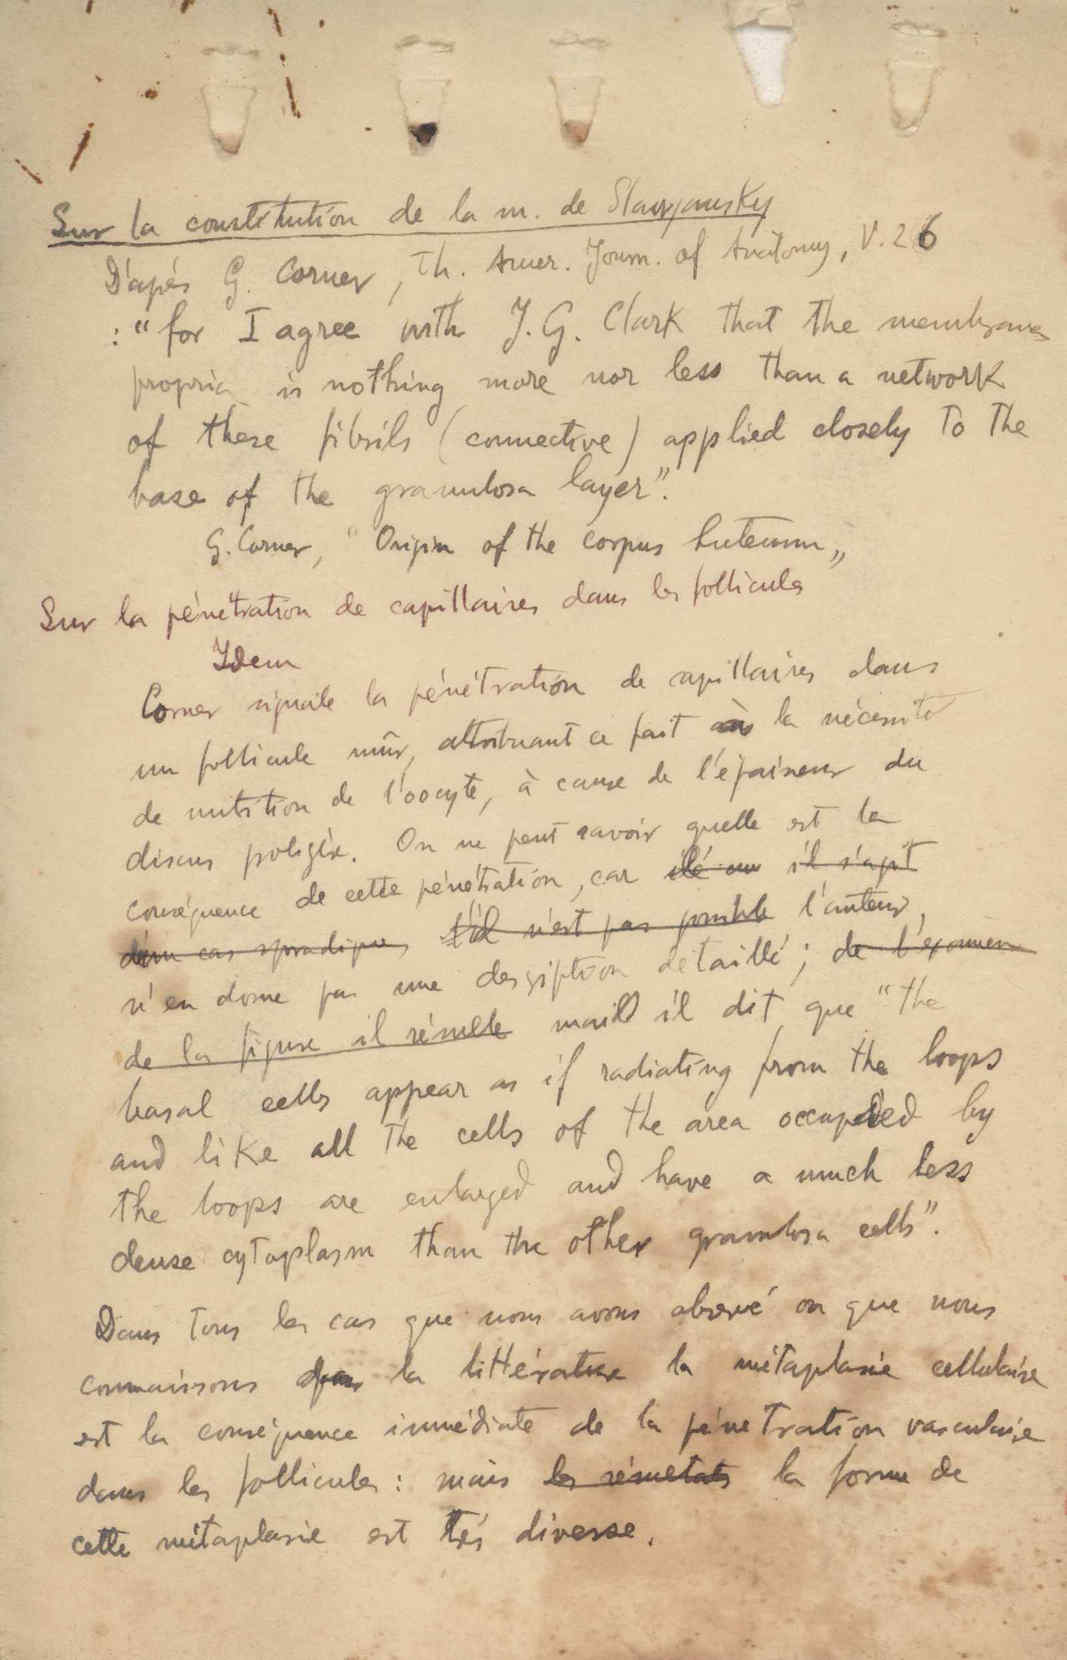 Sur la constitution de la m. de Slavjansky
D'apés G. Corner, Th. Amer. Journ. of Anatomy, V. 26
: "for I agree with J. G. Clark that the membrana
propria is nothing more nor less than a network
of these fibrils (connective) applied closely to the
base of the granulosa layer".
G. Corner, "Origin of the corpus luteum„
Sur la pénétration de capillaires dans les follicules
Idem
Corner signale la pénétration de capillaires dans
un follicule mûr, attribuant ce fait à la nécessité
de nutrition de l'oocyte, à cause de l'épaisseur du
discus proligère. On ne peut savoir quelle est la
conséquence de cette pénétration, car il s'agit
d'un cas sporadique, s'il n'est pas possible l'auteur,
n'en donne pas une desription detaillé; de l'examen
de la figure il résulte mais il dit que "the
basal cells appear as if radiating from the loops
and like all the cells of the area occupied by
the loops are enlarged and have a much less
dense cytoplasm than the other granulosa cells".
Dans tous les cas que nous avons observé ou que nous
connaissons la littérature la métaplasie cellulaire
est la conséquence immédiate de la pénetration vasculaire
dans les follicules : mais les résultats la forme de
cette métaplasie est trés diverse.